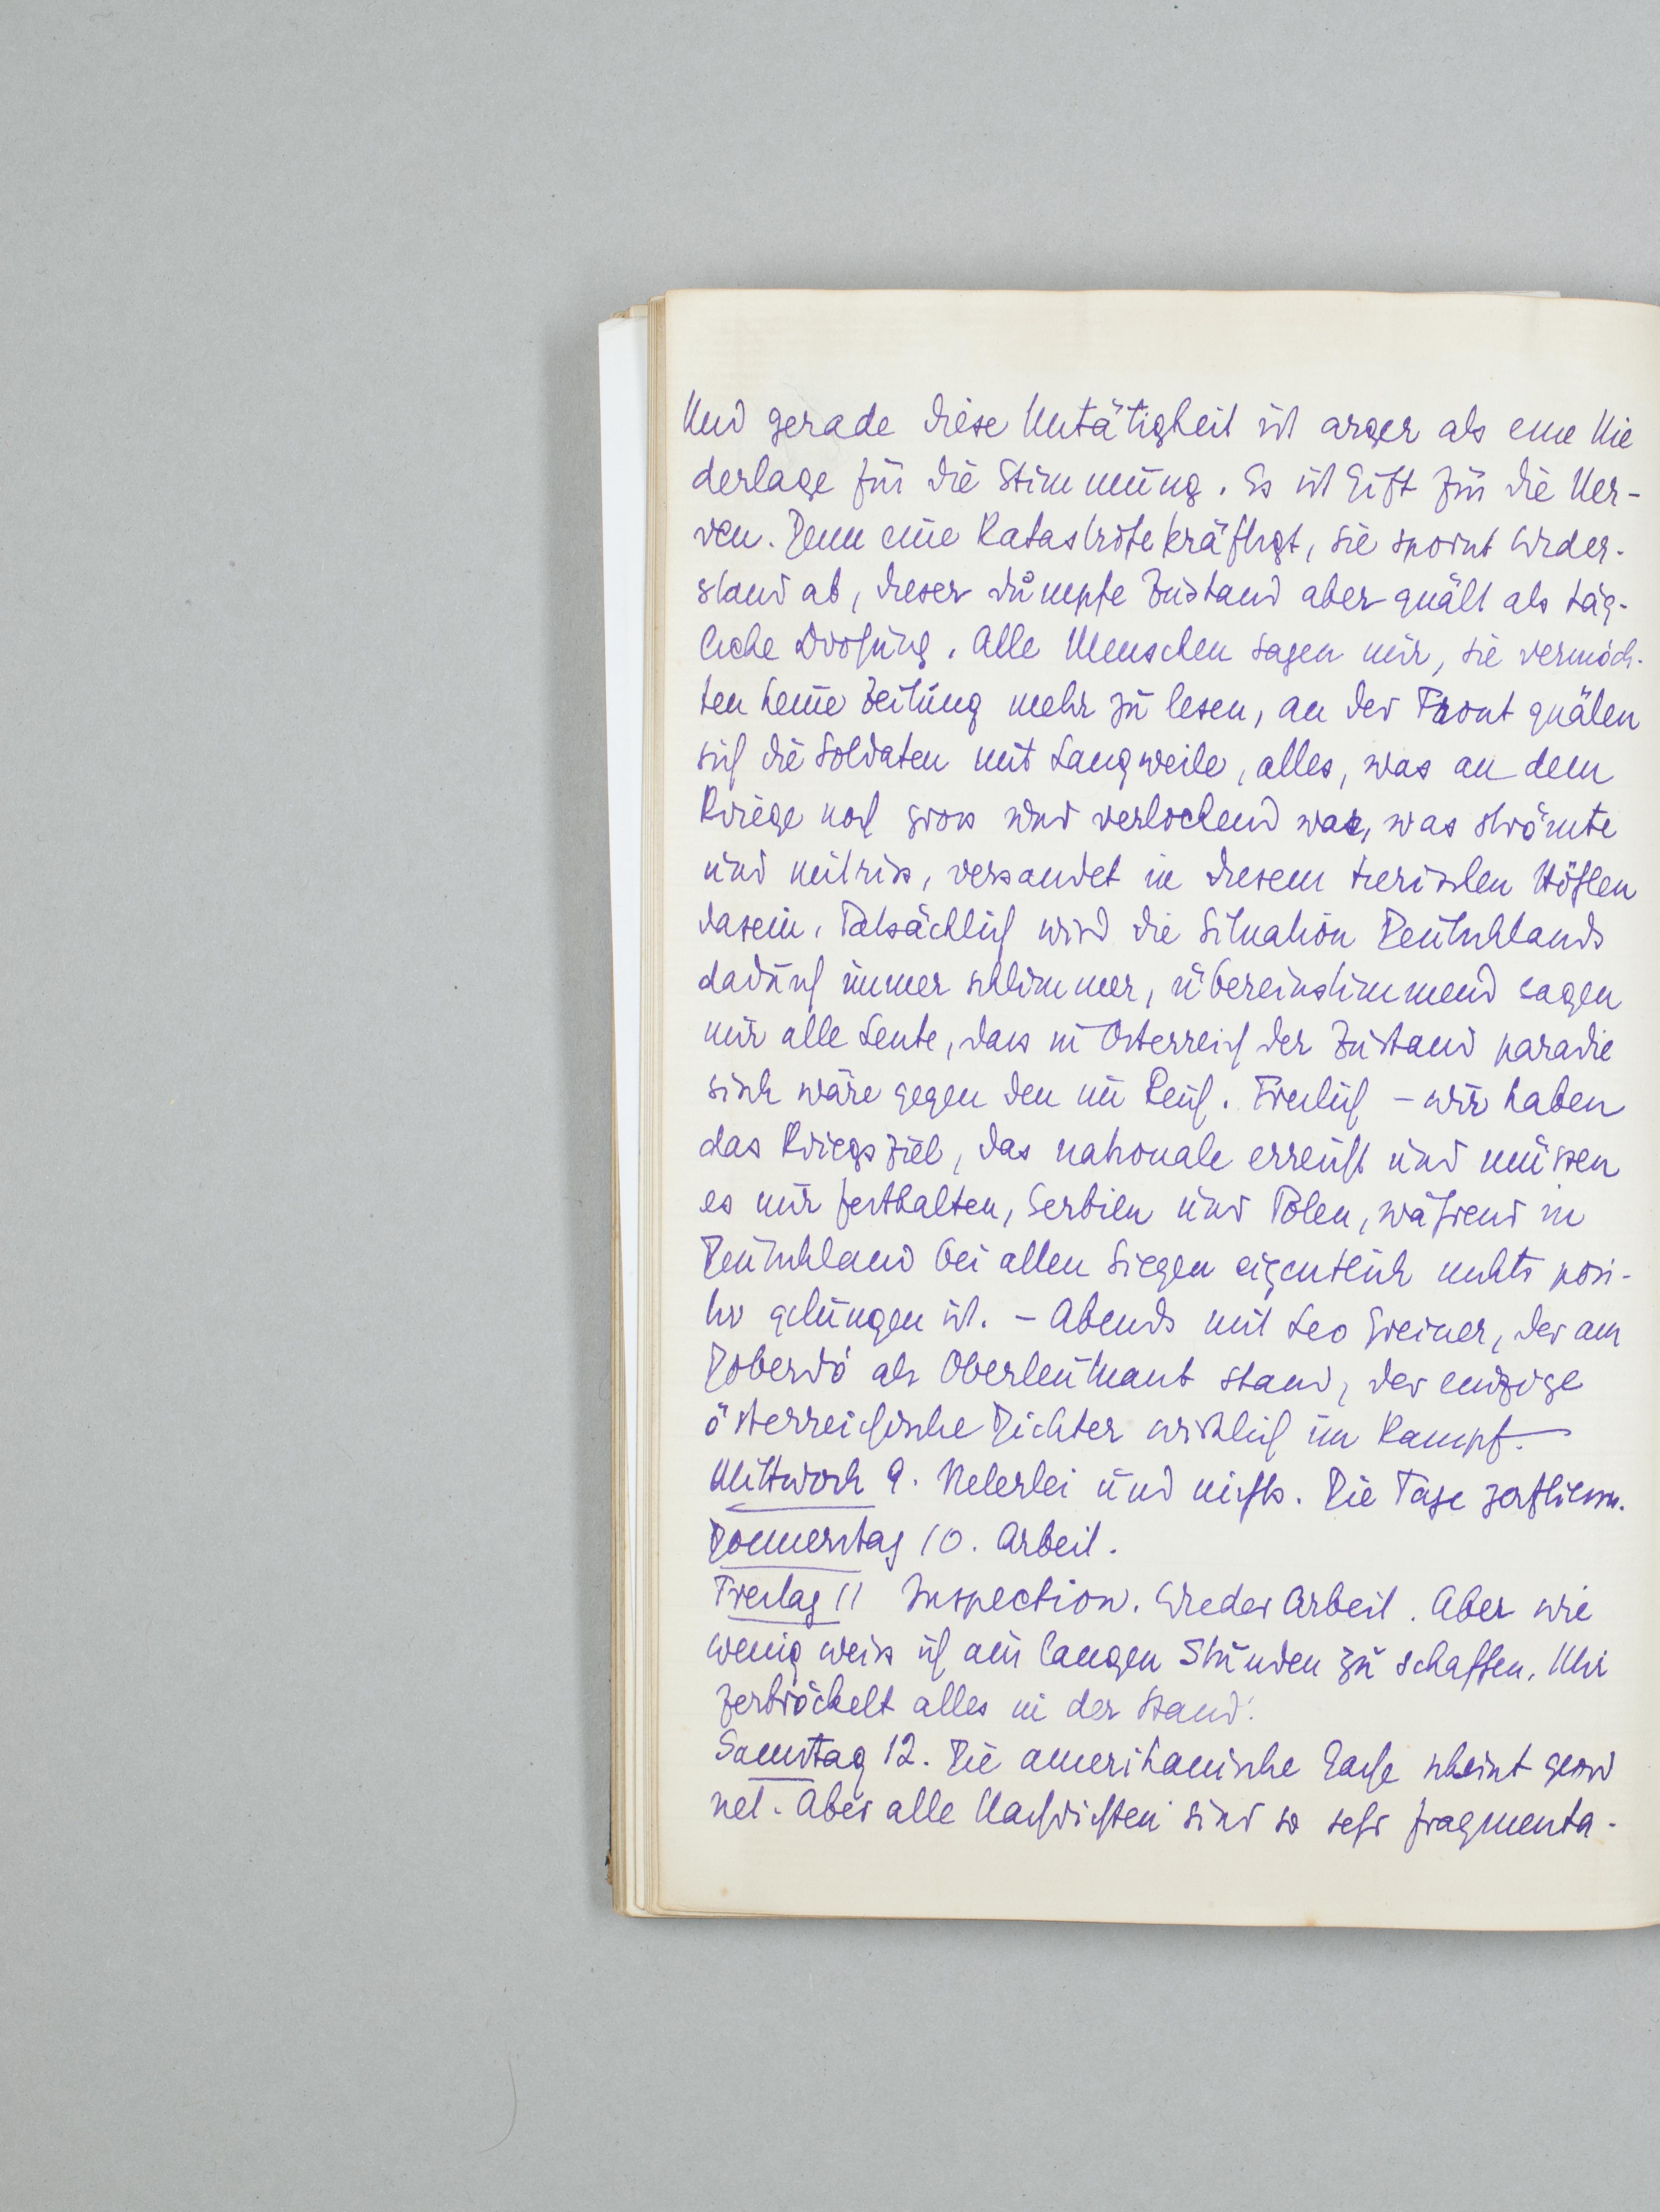 Und gerade diese Untätigkeit ist arger als eine Nie
derlage für die Stimmung. Es ist Gift für die Ner-
ven. Denn eine Katastrofe kräftigt, sie spornt Wider-
stand ab, dieser dumpfe Zustand aber quält als täg-
liche Drohung. Alle Menschen sagen mir, sie vermöch-
ten keine Zeitung mehr zu lesen, an der Front quälen
sich die Soldaten mit Langweile, alles, was an dem
Kriege noch gross und verlockend war, was strömte
und mitriss, versandet in diesem tierischen Höhlen
dasein. Tatsächlich wird die Situation Deutschlands
dadurch immer schlimmer, übereinstimmend sagen
mir alle Leute, dass in Österreich der Zustand paradie
sisch wäre gegen den im Reich. Freilich – wir haben
das Kriegsziel, das nationale erreicht und müssen
es nur festhalten, Serbien und Polen, während in
Deutschland bei allen Siegen eigentlich nichts posi-
tiv gelungen ist. – Abends mit Leo Greiner, der am
Doberdó als Oberleutnant stand, der einzige
österreichische Dichter wirklich im Kampf. –
Mittwoch 9. Vielerlei und nichts. Die Tage zerfliessen.
Donnerstag 10. Arbeit.
Freitag 11 Inspection. Wieder Arbeit. Aber wie
wenig weiss ich aus langen Stunden zu schaffen. Mir
zerbröckelt alles in der Hand.
Samstag 12. Die amerikanische Sache scheint geord
net. Aber alle Nachrichten sind so sehr fragmenta-